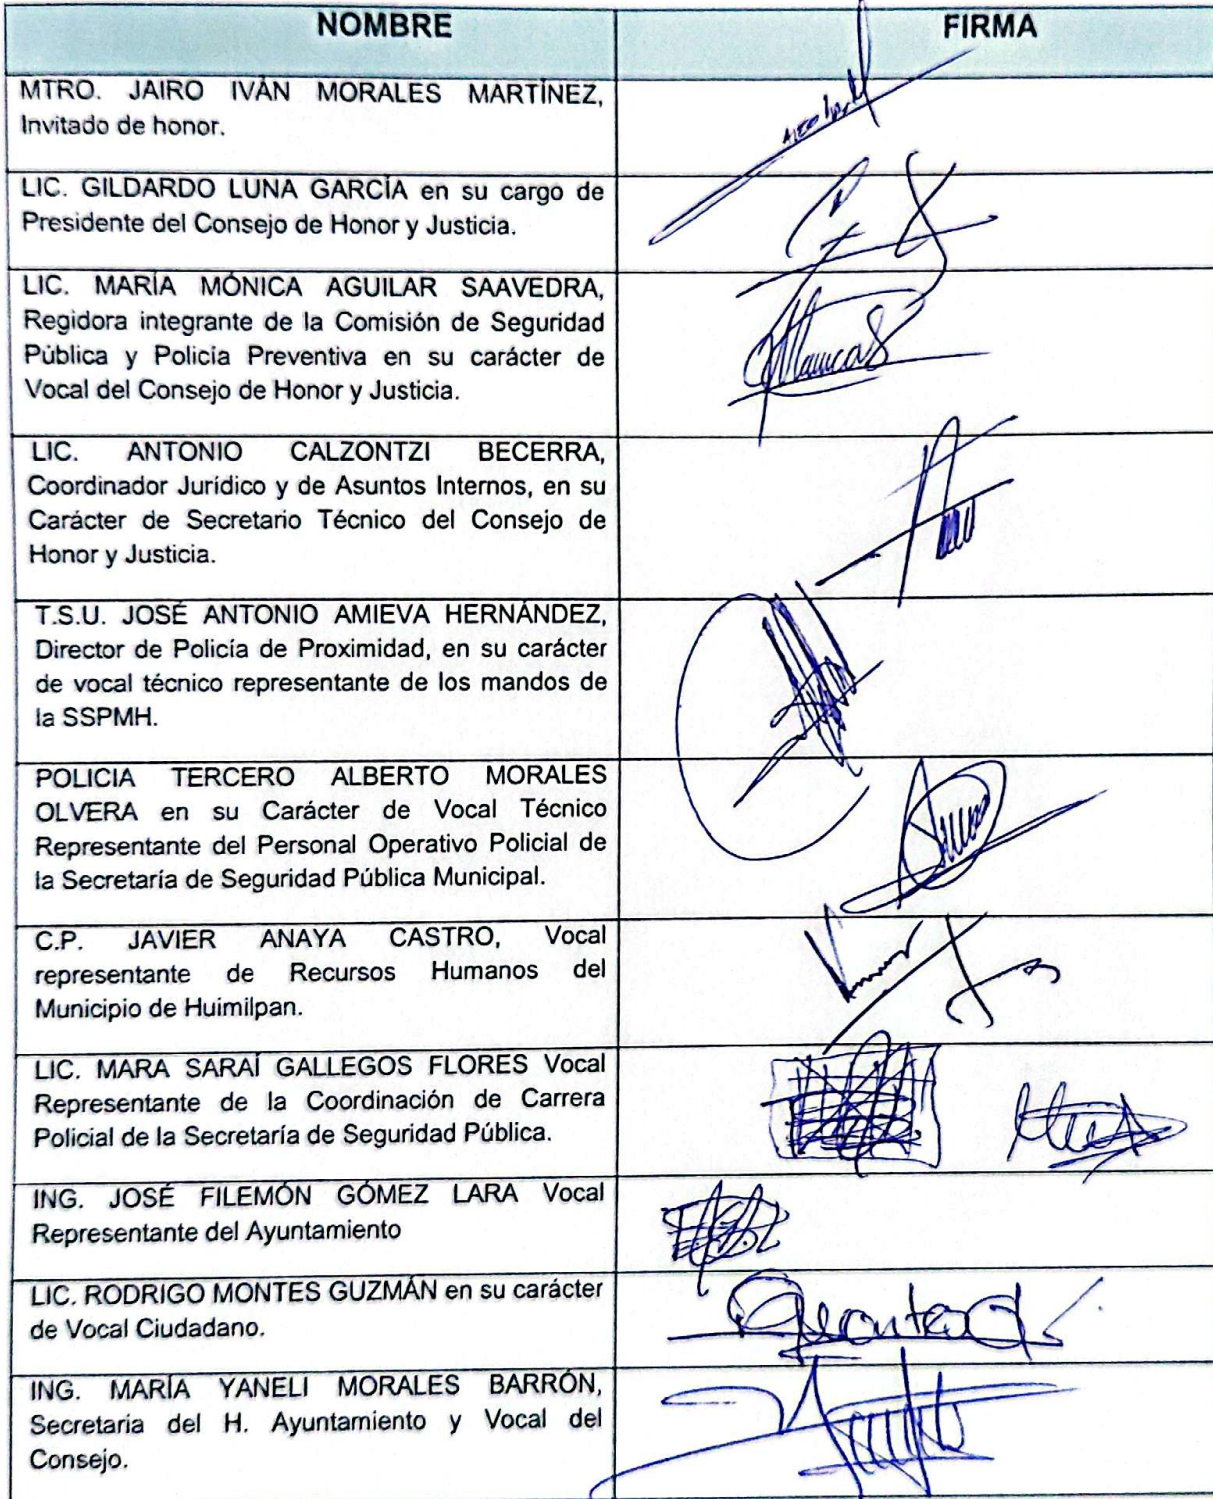 NOMBRE FIRMA
MTRO. JAIRO IVÁN MORALES MARTÍNEZ,
Invitado de honor.
LIC. GILDARDO LUNA GARCÍA en su cargo de
Presidente del Consejo de Honor y Justicia.
LIC. MARÍA MÓNICA AGUILAR SAAVEDRA,
Regidora integrante de la Comisión de Seguridad
Pública y Policía Preventiva en su carácter de
Vocal del Consejo de Honor y Justicia.
LIC. ANTONIO CALZONTZI BECERRA,
Coordinador Jurídico y de Asuntos Internos, en su
Carácter de Secretario Técnico del Consejo de
Honor y Justicia.
T.S.U. JOSÉ ANTONIO AMIEVA HERNÁNDEZ,
Director de Policía de Proximidad, en su carácter
de vocal técnico representante de los mandos de
la SSPMH.
POLICIA TERCERO ALBERTO MORALES
OLVERA en su Carácter de Vocal Técnico
Representante del Personal Operativo Policial de
la Secretaría de Seguridad Pública Municipal.
C.P. JAVIER ANAYA CASTRO, Vocal
representante de Recursos Humanos del
Municipio de Huimilpan.
LIC. MARA SARAÍ GALLEGOS FLORES Vocal
Representante de la Coordinación de Carrera
Policial de la Secretaría de Seguridad Pública.
ING. JOSÉ FILEMÓN GÓMEZ LARA Vocal
Representante del Ayuntamiento
LIC. RODRIGO MONTES GUZMÁN en su carácter
de Vocal Ciudadano.
ING. MARÍA YANELI MORALES BARRÓN,
Secretaria del H. Ayuntamiento y Vocal del
Consejo.